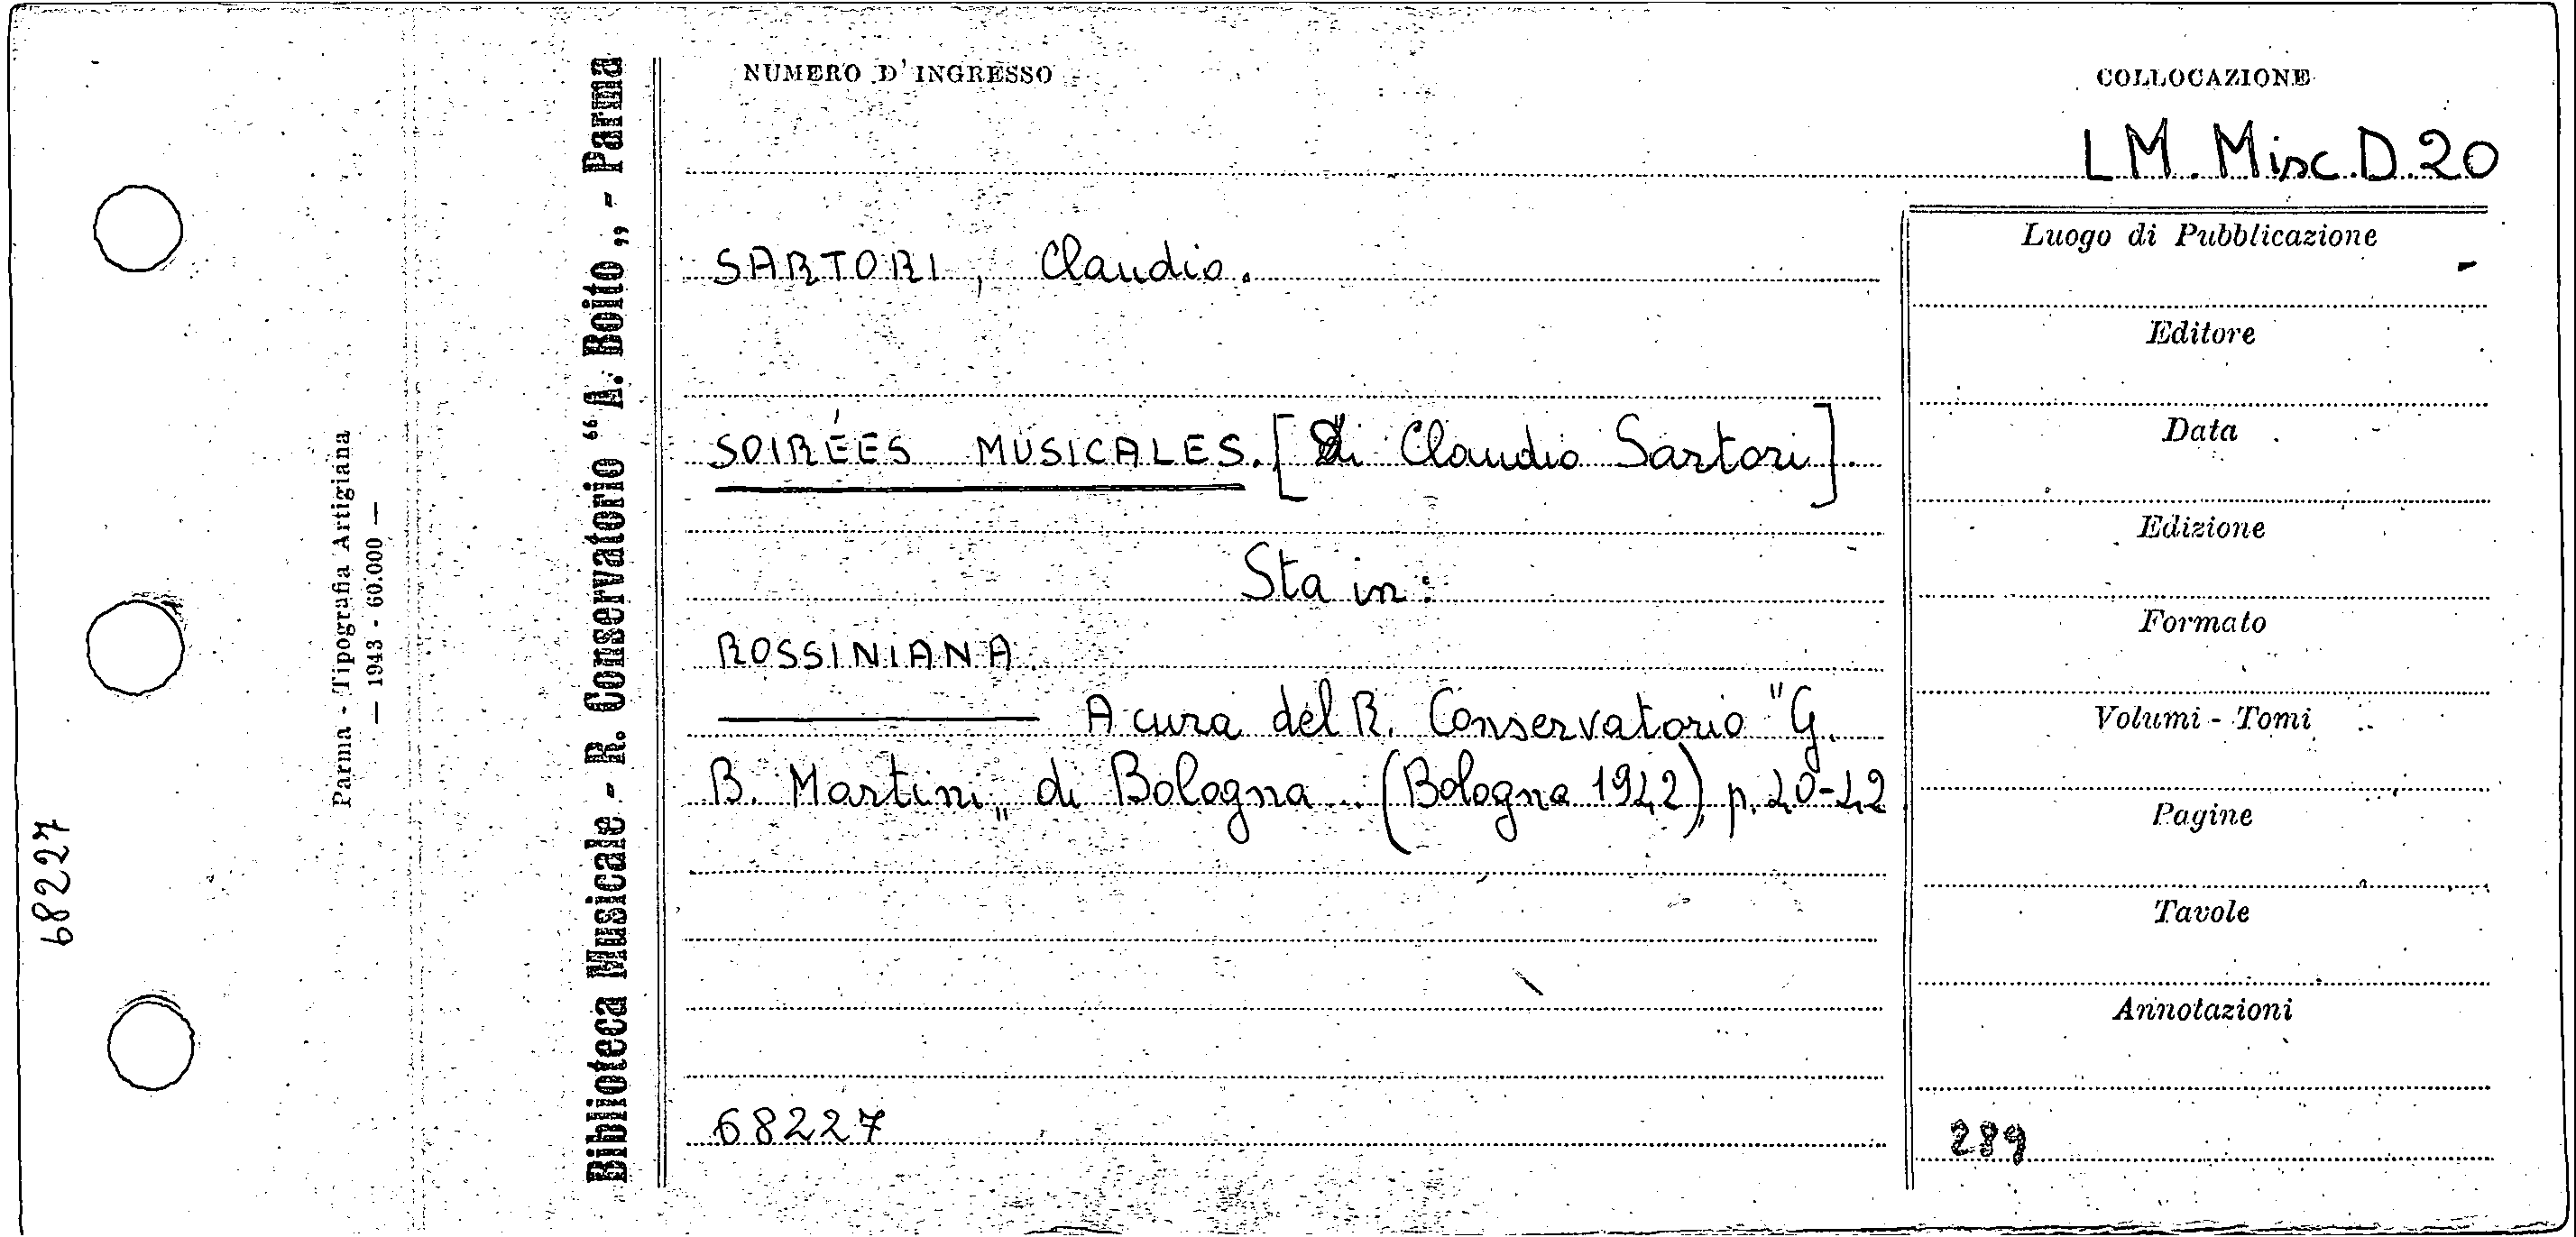 NUMERO D'INGRESSO
COLLOCAZIONE
LM. Misc. D. 20
SARTORI, Claudio.
SOIRÉES MUSICALES. [Di Claudio Sartori].
Sta in:
ROSSINIANA.
A cura del R. Conservatorio "G.
B. Martini„ di Bologna... (Bologna 1942), p. 40-42
68227
Luogo di Pubblicazione
Editore
Data
Edizione
Formato
Volumi - Tomi
Pagine
Tavole
Annotazioni
289
Biblioteca Musicale - R. Conservatorio “A. Boito„ - Parma
Parma - Tipografia Artigiana
— 1943 - 60.000 —
68227